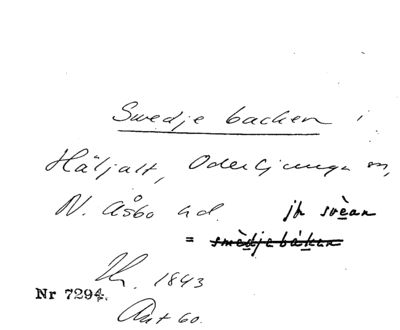 Swedje backen i
Häljalt, Oderljunga sn,
N. Åsbo hd. jfr svèan
= smèdjebákan
1843
Nr 7294.
Akt 60.